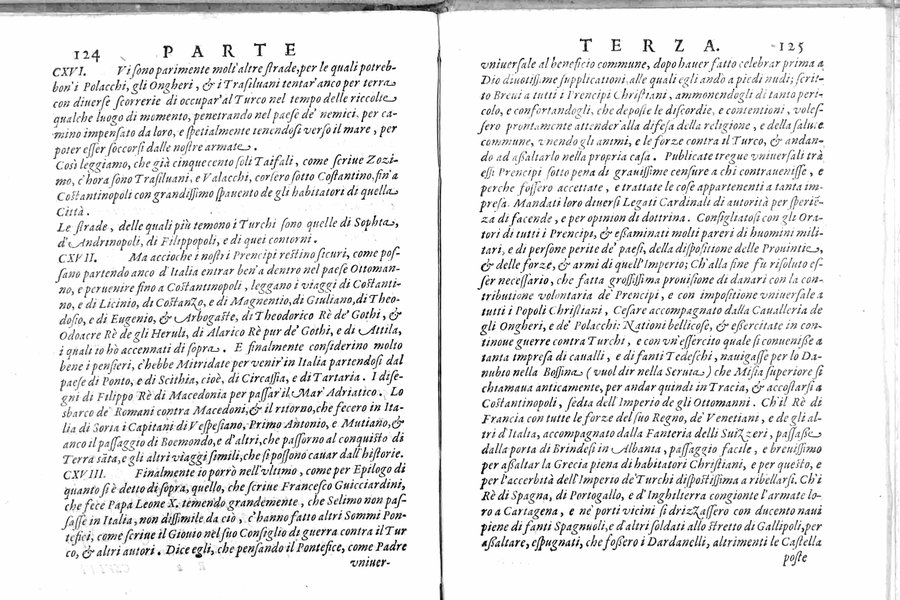 124 PARTE
CXVI. Vi sono parimente molt'altre strade, per le quali potreb-
bon'i Polacchi, gli Ongheri, & i Trasiluani tentar'anco per terra
con diuerse scorrerie di occupar'al Turco nel tempo delle riccolte
qualche luogo di momento, penetrando nel paese de' nemici, per ca-
mino impensato da loro, e spetialmente tenendosi verso il mare, per
poter esser soccorsi dalle nostre armate.
Così leggiamo, che già cinquecento soli Taifali, come scriue Zozi-
mo, c'hora sono Trasiluani, e Valacchi, corsero sotto Costantino, fin'a
Costantinopoli con grandissimo spauento de gli habitatori di quella
Città.
Le strade, delle quali più temono i Turchi sono quelle di Sophia,
d'Andrinopoli, di Filippopoli, e di quei contorni.
CXVII. Ma accioche i nostri Prencipi restino sicuri, come pos-
sano partendo anco d'Italia entrar ben'a dentro nel paese Ottoman-
no, e peruenire fino a Costantinopoli, leggano i viaggi di Costanti-
no, e di Licinio, di Costanzo, e di Magnentio, di Giuliano, di Theo-
dosio, e di Eugenio, & Arbogaste, di Theodorico Rè de' Gothi, &
Odoacre Rè de gli Heruli, di Alarico Rè pur de' Gothi, e di Attila,
i quali io hò accennati di sopra. E finalmente considerino molto
bene i pensieri, c'hebbe Mitridate per venir'in Italia partendosi dal
paese di Ponto, e di Scithia, cioè, di Circassia, e di Tartaria. I dise-
gni di Filippo Rè di Macedonia per passar'il Mar' Adriatico. Lo
sbarco de' Romani contra Macedoni, & il ritorno, che fecero in Ita-
lia di Soria i Capitani di Vespesiano, Primo Antonio, e Mutiano, &
anco il passaggio di Boemondo, e d'altri, che passorno al conquisto di
Terra sāta, e gli altri viaggi simili, che si possono cauar dall'historie.
CXVIII. Finalmente io porrò nell'vltimo, come per Epilogo di
quanto si è detto di sopra, quello, che scriue Francesco Guicciardini,
che fece Papa Leone X. temendo grandemente, che Selimo non pas-
sasse in Italia, non dissimile da ciò, c'hanno fatto altri Sommi Pon-
tefici, come scriue il Giouio nel suo Consiglio di guerra contra il Tur
co, & altri autori. Dice egli, che pensando il Pontefice, come Padre
vniuer-
TERZA. 125
vniuersale al beneficio commune, dopo hauer fatto celebrar prima a
Dio diuotissime supplicationi, alle quali egli andò a piedi nudi; scrit-
to Breui a tutti i Prencipi Christiani, ammonendogli di tanto peri-
colo, e confortandogli, che deposte le discordie, e contentioni, voles-
sero prontamente attender'alla difesa della religione, e della salute
commune, vnendo gli animi, e le forze contra il Turco, & andan-
do ad assaltarlo nella propria casa. Publicate tregue vniuersali trà
essi Prencipi sotto pena di grauissime censure a chi contrauenisse, e
perche fossero accettate, e trattate le cose appartenenti a tanta im-
presa. Mandati loro diuersi Legati Cardinali di autorità per sperië-
za di facende, e per opinion di dottrina. Consigliatosi con gli Ora-
tori di tutti i Prencipi, & essaminati molti pareri di huomini mili-
tari, e di persone perite de' paesi, della dispositione delle Prouintie,
& delle forze, & armi di quell'Imperio; Ch'alla fine fù risoluto es-
ser necessario, che fatta grossissima prouisione di danari con la con-
tributione volontaria de' Prencipi, e con impositione vniuersale a
tutti i Popoli Christiani, Cesare accompagnato dalla Caualleria de
gli Ongheri, e de' Polacchi: Nationi bellicose, & essercitate in con-
tinoue guerre contra Turchi, e con vn'essercito quale si conuenisse a
tanta impresa di caualli, e di fanti Tedeschi, nauigasse per lo Da-
nubio nella Bossina (vuol dir nella Seruia) che Misia superiore si
chiamaua anticamente, per andar quindi in Tracia, & accostarsi a
Costantinopoli, sedia dell'Imperio de gli Ottomanni. Ch'il Rè di
Francia con tutte le forze del suo Regno, de' Venetiani, e de gli al-
tri d'Italia, accompagnato dalla Fanteria delli Suizzeri, passasse
dalla porta di Brindesi in Albania, passaggio facile, e breuissimo
per assaltar la Grecia piena di habitatori Christiani, e per questo, e
per l'acerbità dell'Imperio de' Turchi dispostissima a ribellarsi. Ch'i
Rè di Spagna, di Portogallo, e d'Inghilterra congionte l'armate lo-
ro a Cartagena, e ne' porti vicini si drizzassero con ducento naui
piene di fanti Spagnuoli, e d'altri soldati allo stretto di Gallipoli, per
assaltare, espugnati, che fossero i Dardanelli, altrimenti le Castella
poste